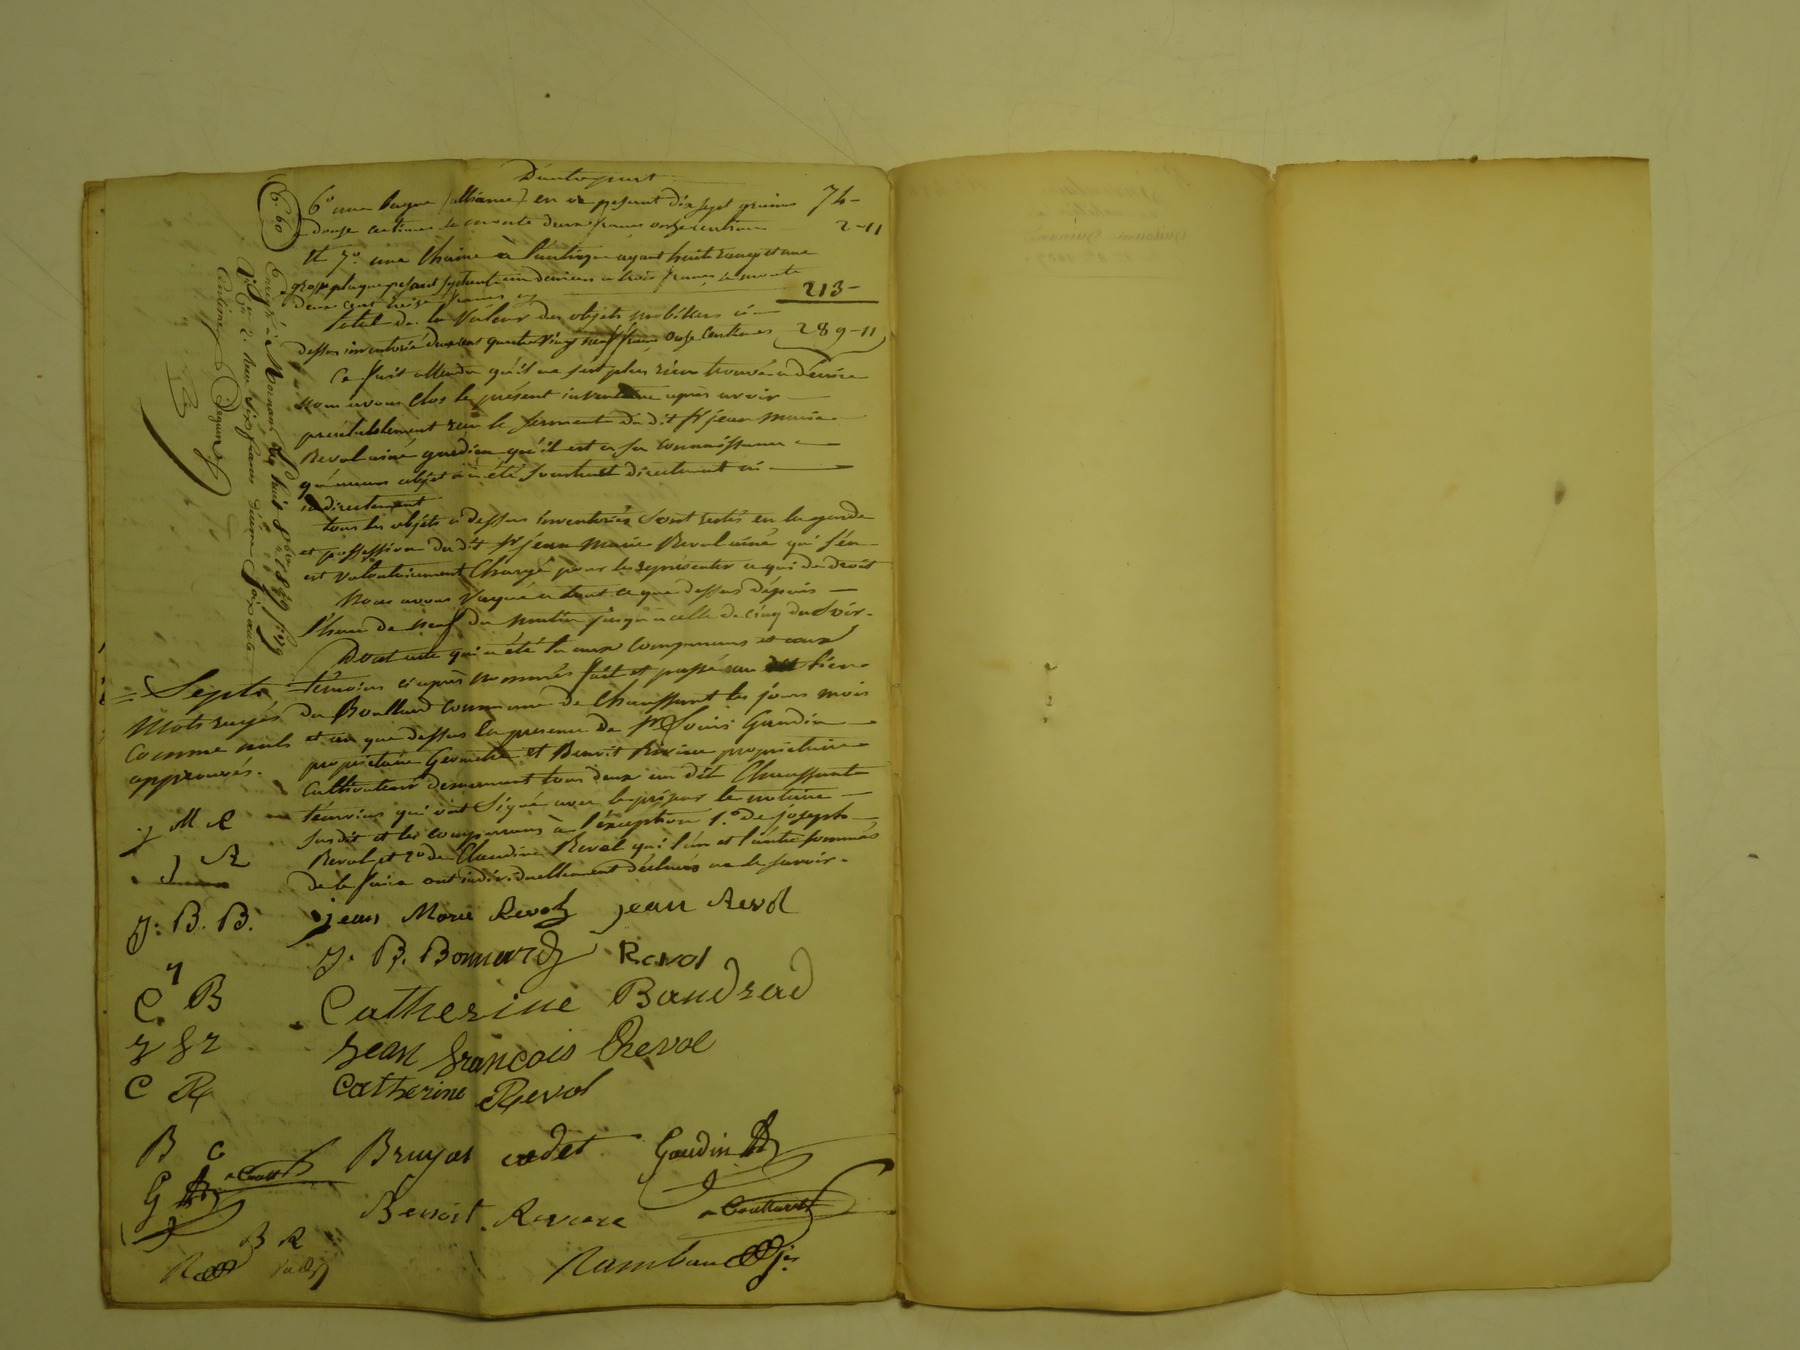 D'autre part
6.60
6° une bague (alliance) en or pesant dix sept grains 74-
douze centimes se monte deux francs onze centimes 2-11
Et 7° une chaine à l'antique ayant huit rangs et une
grosse plaque pesant septante un deniers a trois francs, se monte
deux cent treize francs 213-
total de la valeur des objets mobiliers ci-
dessus inventorié deux cent quatre vingt neuf francs onze centimes 289-11
Ce fait attendu qu'il ne s'est plus rien trouvé a décrire
nous avons clos le présent inventaire après avoir
préalablement reçu le serment du dit Sr jean Marie
Revol ainé gardien qu'il est a sa connaissance
qu'aucun objet n'a été soustrait directement ni
indirectement
tous les objets ci dessus inventoriés sont restés en la garde
et possession du dit Sr jean Marie Revol ainé qui s'en
est volontairement chargé pour les représenter a qui de droit
Nous avons vaqué a tout ce que dessus dépuis
l'heure de neuf du matin jusqu'a celle de cinq du soir.
Dont acte qui a été lu aux comparans et aux
témoins ci après nommés fait et passé au lieu
du Boullard commune de Chaussant les jours mois
et an que dessus en presence de Sr Louis Gaudin
propriétaire Géometre et Benoit Riviere propriétaire
cultivateur demeurant tous deux au dit Chaussant
témoins qui ont signé avec le notaire
susdit et les comparans à l'éxception 1.° de joseph
Revol et 2° de Claudine Revol qui l'un et l'autre sommés
de le faire ont individuellement déclarés ne le savoir.
= Septs
Mots rayés
comme nuls
approuvés.
j M R
j R
J. B. B.
C B
J f r
C R
B C
G
B R
jean Marie Revol jean Revol
J. B. Bonnard Revol
Catherine Baudrad
Jean françois Revol
Catherine Revol
Bruyas cadet Gaudin
Benoit Riviere Couttaret
Rambaud
Enregté à Mornant le huit 8bre 1829
Reçu six francs décime soixante
centimes